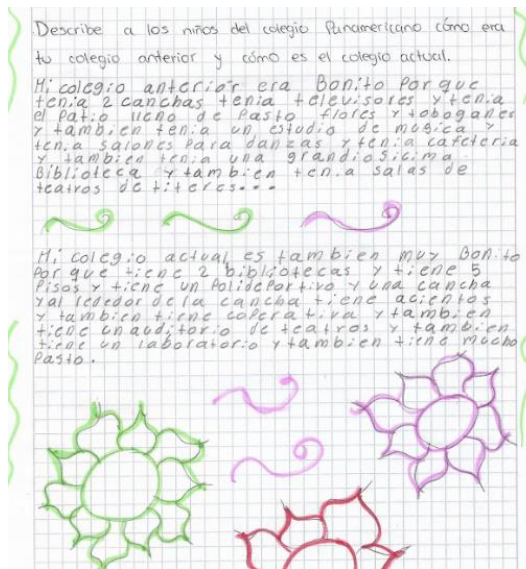 Describe a los niños del colegio Panamericano cómo era
tu colegio anterior y cómo es el colegio actual.
Mi colegio anterior era Bonito Porque
tenia 2 canchas tenia televisores y tenia
el Patio lleno de Pasto flores y toboganes
y tambien tenia un estudio de musica y
tenia salones Para danzas y tenia cafeteria
y tambien tenia una grandiosicima
Biblioteca y tambien tenia salas de
teatros de titeres...
Mi colegio actual es tambien muy Bonito
Porque tiene 2 bibliotecas y tiene 5
Pisos y tiene un Polideportivo y una cancha
y al rededor de la cancha tiene acientos
y tambien tiene coperativa y tambien
tiene un auditorio de teatros y tambien
tiene un laboratorio y tambien tiene mucho
Pasto.